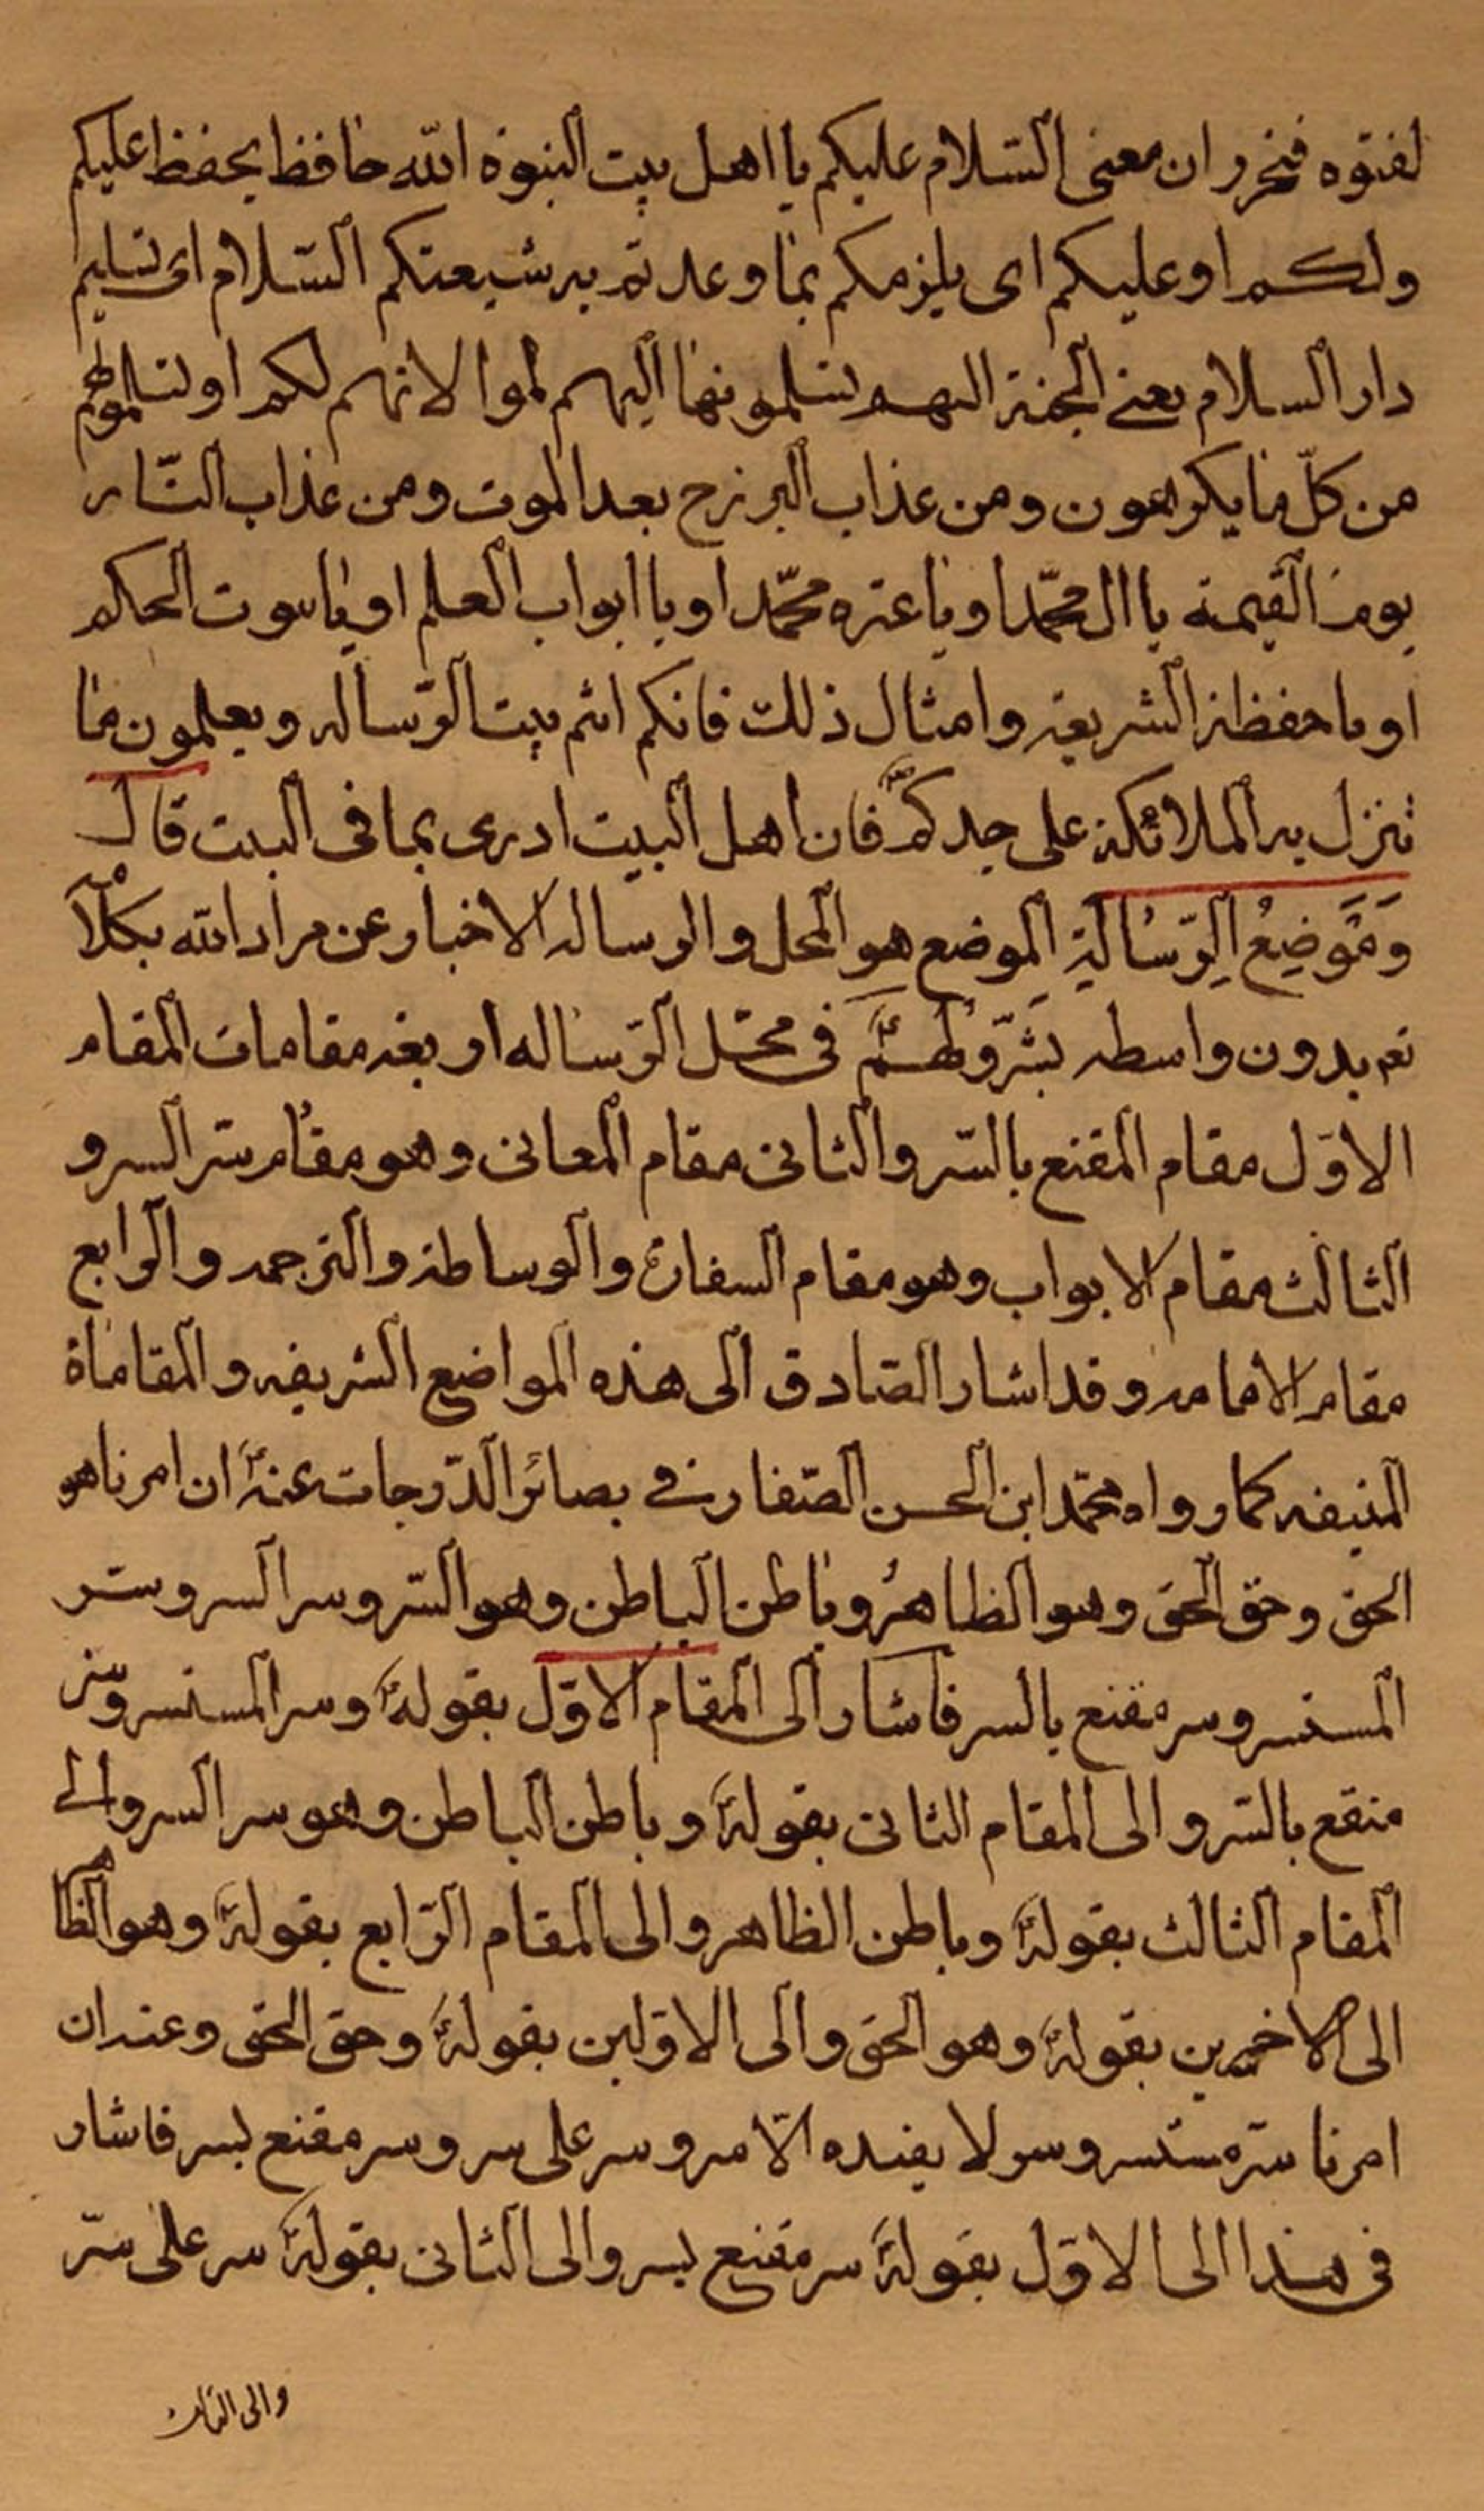 لفتوه فتحرر ان معنى السّلام عليكم يا اهل بيت النبوة اللّه حافظ يحفظ عليكم
ولكم او عليكم اى يلزمكم بما وعدتم به شيعتكم السّلام اى تسليم
دار السلام يعنى الجنة اليهم تسلمونها اليهم لموالاتهم لكم او تسلموهم
من كلّ ما يكرهون ومن عذاب البرزخ بعد الموت ومن عذاب النّار
يوم القيمة يا ال محمّد او يا عتره محمّد او يا ابواب العلم او يا بيوت الحكم
او يا حفظة الشريعة وامثال ذلك فانكم انتم بيت الرّساله ويعلمون ما
تنزل به الملائكة على جدكم فان اهل البيت ادرى بما فى البيت قال
وَمَوَضِعُ الرِّسٰالَةِ الموضع هو المحل والرساله الاخبار عن مراد الله بكلا
نه بدون واسطه بشر ولهم فى محّل الرّساله اربعة مقامات المقام
الاوّل مقام المقنع بالسّر والثانى مقام المعانى وهو مقام سّر السر و
الثالث مقام الابواب وهو مقام السفارة والوساطة والترجمه والرابع
مقام الامامه وقد اشار الصّادق الى هذه المواضع الشريفه والمقاماة
المنيفه كما رواه محمّد ابن الحسن الصّفار فى بصائر الدّرجات عنه ان امرنا هو
الحق وحق الحق وهو الظاهر وباطن الباطن وهو السّر وسر السر وسّر
المستسر وسر مقنع بالسر فاشار الى المقام الاوّل بقوله وسر المستسر وسر
منقع بالسّر والى المقام الثانى بقوله وباطن الباطن وهو سر السر والى
المقام الثالث بقوله وباطن الظاهر والى المقام الرّابع بقوله وهو الظاهر
الى الاخيرين بقوله وهو الحق والى الاوّلين بقوله وحق الحق وعنه ان
امرنا سّر مستسر وسر لا يفيده الّا سر وسر على سر وسر مقنع بسر فاشار
فى هذا الى الاوّل بقوله سر مقنع بسر والى الثانى بقوله سر على سّر
والى الثالث